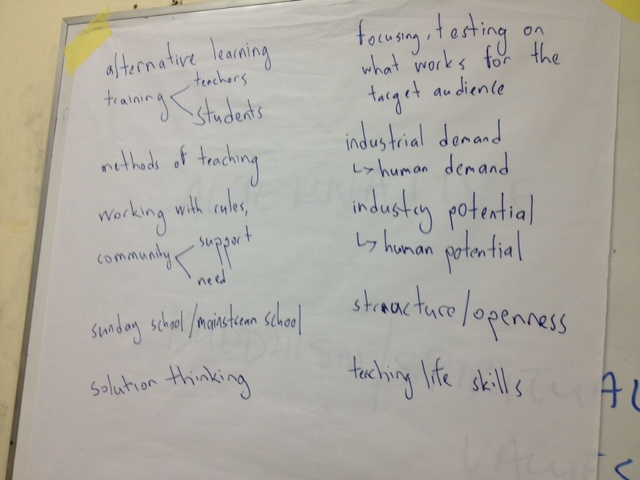 alternative learning
training < teachers
students
methods of teaching
working with rules,
community < support
need
sunday school/mainstream school
solution thinking
focusing, testing on
what works for the
target audience
industrial demand
↳ human demand
industry potential
↳ human potential
structure/openness
teaching life skills